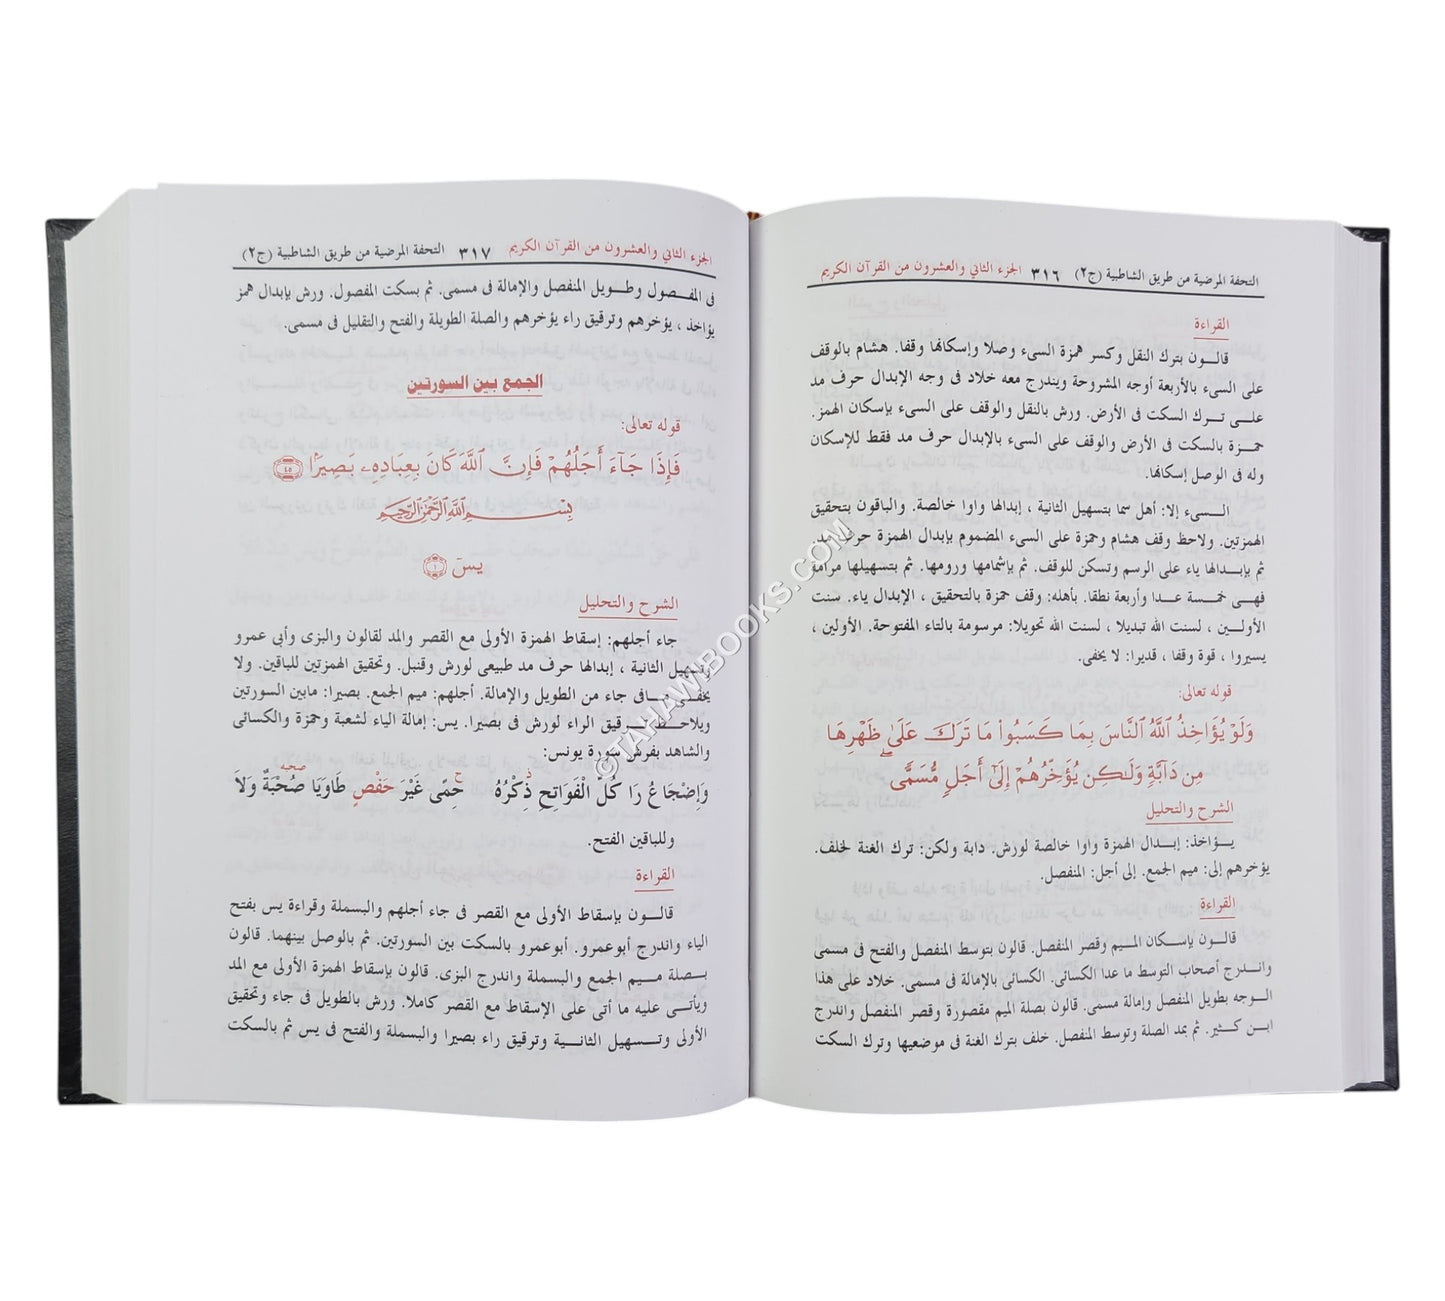 التحفة المرضية من طريق الشاطبية (ج٢) ٣١٦ الجزء الثاني والعشرون من القرآن الكريم
القراءة
قالـون بترك النقل وكسر همزة السىء وصلا وإسكانها وقفا. هشام بالوقف
على السىء بالأربعة أوجه المشروحة ويندرج معه خلاد فى وجه الإبدال حرف مد
علـى تـرك السكت فى الأرض. ورش بالنقل والوقف على السىء بإسكان الهمز.
حمـزة بالسكت فى الأرض والوقف على السىء بالإبدال حرف مد فقط للإسكان
وله فى الوصل إسكانها.
السـىء إلا: أهل سما بتسهيل الثانية ، إبدالها واوا خالصة. والباقون بتحقيق
الهمزتين. ولاحظ وقف هشام وحمزة على السىء المضموم بإبدال الهمزة حرف مد
ثم بإبـدالها ياء على الرسم وتسكن للوقف. ثم بإشمامها ورومها. ثم بتسهيلها مرامة
فهـى خمـسة عـدا وأربعة نطقا. بأهله: وقف حمزة بالتحقيق ، الإبدال ياء. سنت
الأولـين ، لسنت الله تبديلا ، لسنت الله تحويلا: مرسومة بالتاء المفتوحة. الأولين ،
يسيروا ، قوة وقفا ، قديرا: لا يخفى.
قوله تعالى:
وَلَوْ يُؤَاخِذُ ٱللَّهُ ٱلنَّاسَ بِمَا كَسَبُوا۟ مَا تَرَكَ عَلَىٰ ظَهْرِهَا
مِن دَآبَّةٍ وَلَـٰكِن يُؤَخِّرُهُمْ إِلَىٰٓ أَجَلٍ مُّسَمًّى
الشرح والتحليل
يـؤاخذ: إبـدال الهمزة واوا خالصة لورش. دابة ولكن: ترك الغنة لخلف.
يؤخرهم إلى: ميم الجمع. إلى أجل: المنفصل.
القراءة
قالـون بإسكان المـيم وقصر المنفصل. قالون بتوسط المنفصل والفتح فى مسمى
واندرج أصحاب التوسط ما عدا الكسائى. الكسائى بالإمالة فى مسمى. خلاد على هذا
الـوجه بطويل المنفصل وإمالة مسمى. قالون بصلة الميم مقصورة وقصر المنفصل واندرج
ابـن كـثير. ثم بمد الصلة وتوسط المنفصل. خلف بترك الغنة فى موضعيها وترك السكت
الجزء الثاني والعشرون من القرآن الكريم ٣١٧ التحفة المرضية من طريق الشاطبية (ج٢)
فى المفـصول وطـويل المنفصل والإمالة فى مسمى. ثم بسكت المفصول. ورش بإبدال همز
يؤاخذ ، يؤخرهم وترقيق راء يؤخرهم والصلة الطويلة والفتح والتقليل فى مسمى.
الجمع بين السورتين
قوله تعالى:
فَإِذَا جَآءَ أَجَلُهُمْ فَإِنَّ ٱللَّهَ كَانَ بِعِبَادِهِۦ بَصِيرًۢا ٤٥
بِسْمِ ٱللَّهِ ٱلرَّحْمَـٰنِ ٱلرَّحِيمِ
يسٓ ١
الشرح والتحليل
جاء أجلهم: إسقاط الهمزة الأولى مع القصر والمد لقالون والبزى وأبى عمرو
وتسهيل الثانية ، إبدالها حرف مد طبيعى لورش وقنبل. وتحقيق الهمزتين للباقين. ولا
يخفـى مـافى جاء من الطويل والإمالة. أجلهم: ميم الجمع. بصيرا: مابين السورتين
ويلاحـظ ترقيق الراء لورش فى بصيرا. يس: إمالة الياء لشعبة وحمزة والكسائى
والشاهد بفرش سورة يونس:
وَإِضْجَاعُ رَا كُلِّ الْفَوَاتِحِ ذِكْرُهُ حِمًى غَيْرَ حَفْصٍ طَاوَيَا صُحْبَةٌ وَلَا
صحبه
وللباقين الفتح.
القراءة
قالـون بإسقاط الأولى مع القصر فى جاء أجلهم والبسملة وقراءة يس بفتح
الياء واندرج أبوعمرو. أبوعمرو بالسكت بين السورتين. ثم بالوصل بينهما. قالون
بـصلة مـيم الجمع والبسملة واندرج البزى. قالون بإسقاط الهمزة الأولى مع المد
ويأتـى عليه ما أتى على الإسقاط مع القصر كاملا. ورش بالطويل فى جاء وتحقيق
الأولى وتـسهيل الثانـية وترقيق راء بصيرا والبسملة والفتح فى يس ثم بالسكت
© TAHAWIBOOKS.COM